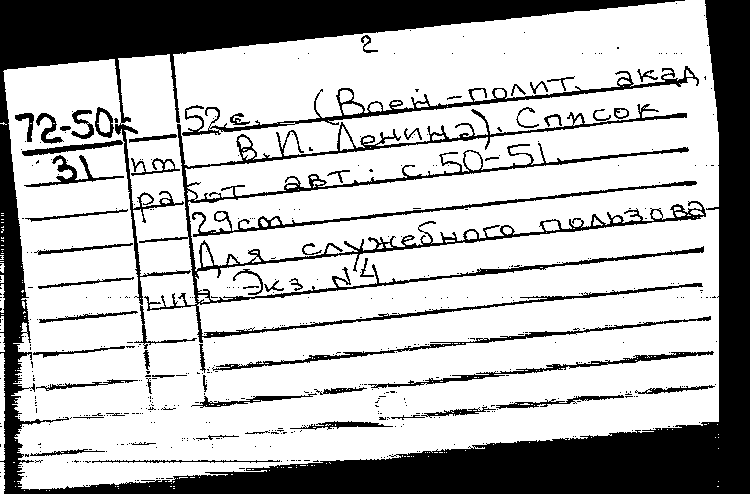 2
72-50к 52с. (Воен.-полит. акад.
31 им. В.И. Ленина). Список
работ авт.: с. 50-51.
29см.
Для служебного пользова
ния. Экз. №4.